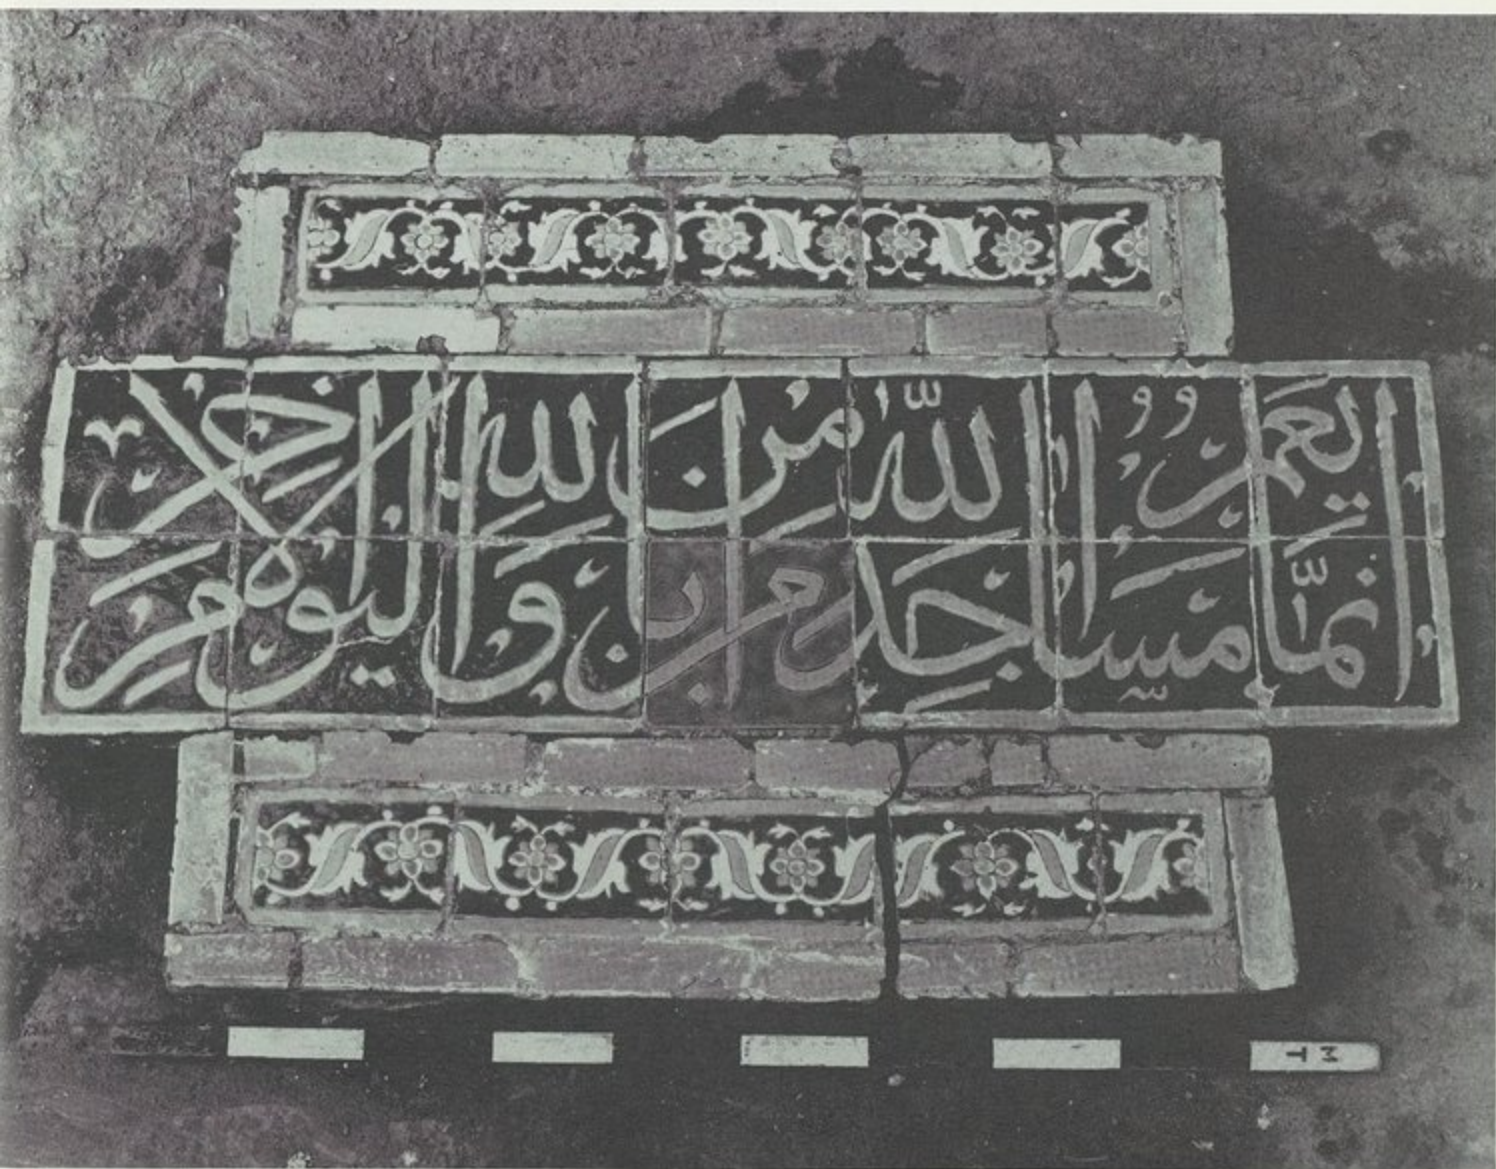 انما يعمر مساجد الله من امن بالله واليوم الاخر
MT